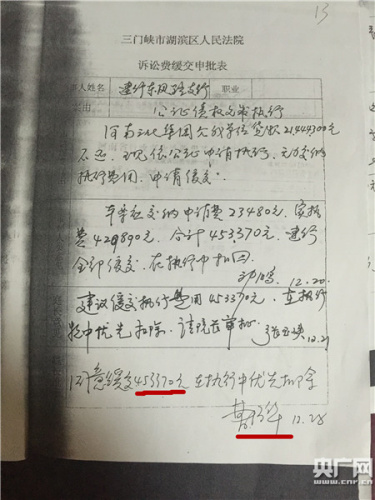 13
三门峡市湖滨区人民法院
诉讼费缓交申批表
人姓名 建行东风路支行 职业
由 公证债权文书执行
河南 集团欠我单位贷款21444300元
不还，现依公证申请执行，无力交纳
执行费用，申请缓交。
本案应交纳申请费23480元，实支
费429890元，合计453370元，建行
全部缓交，在执行中扣回。
12.20
建议缓交执行费用453370元，在执行
款中优先扣除，请院长审批
12.21
同意缓交453370元在执行中优先扣除
12.28
央广网